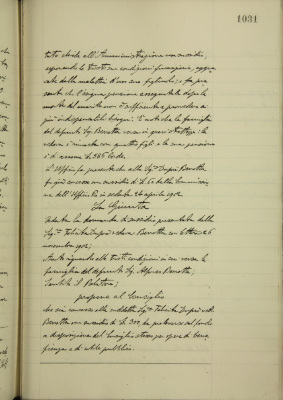 1031
tutto chiede all'Amministrazione un sussidio,
esponendo le tristi sue condizioni finanziarie, aggra
vate dalla malattia d'una sua figliuola; e fa pre
sente che l'esigua pensione assegnatale dopo la
morte del marito non è sufficiente a provvedere ai
più indispensabili bisogni. È noto che la famiglia
del defunto Sig. Benotta versa in gravi strettezze: la
vedova è rimasta con quattro figli e la sua pensione
è di annue L. 585 lorde.
L'Ufficio fa presente che alla Sig.ra Dupré Benotta
fu già concesso un sussidio di L. 60 dalla Commissio
ne dell'Ufficio in seduta 26 aprile 1902
La Giunta
Veduta la domanda di sussidio presentata dalla
Sig.ra Felicita Dupré vedova Benotta con lettera 26
novembre 1902;
Avuto riguardo alle tristi condizioni in cui versa la
famiglia del defunto Sig. Alfonso Benotta;
Sentito il Relatore;
propone al Consiglio
che sia concesso alla suddetta Sig.ra Felicita Dupré ved.
Benotta un sussidio di L. 300 da prelevarsi sul fondo
a disposizione del Consiglio stesso per opere di bene
ficenza e di utilità pubblica.